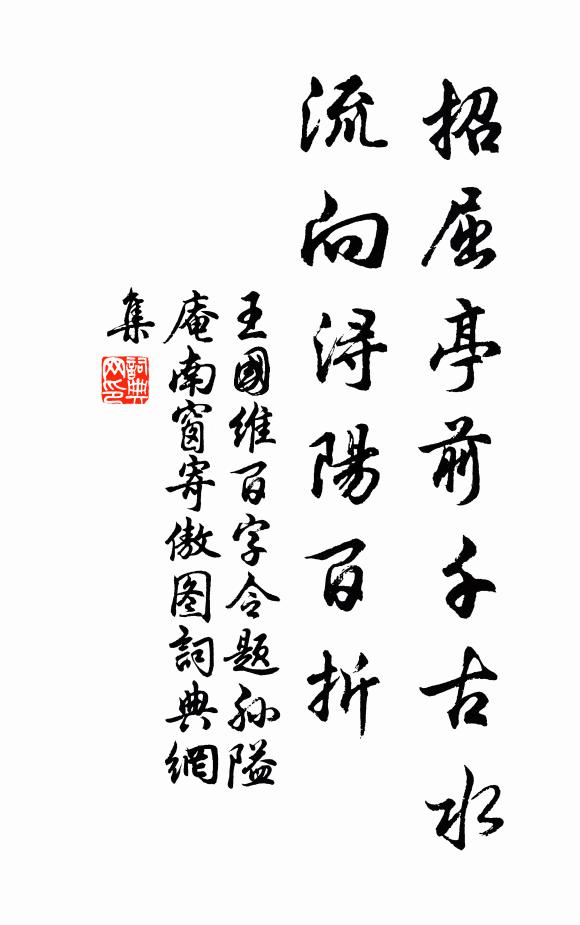 招屈亭前千古水
流向浔陽百折
王國維百字令题孙隘
庵南窗寄傲图詞典網
集
詞典
网印